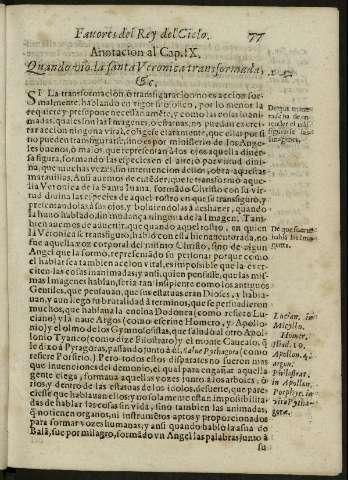 Fauores del Rey del Cielo. 77
Anotacion al Cap. IX.
Quando vio la santa Veronica transformada,
&c.
SI La transformacion ò transfiguracion es accion for-
malmente, hablando en rigor filosofico, por lo menos la
requiere y presupone necessariamẽte, y como las cosas inani-
madas, quales son las Imagenes, o charcas, no puedan exerci-
tar accion ninguna vital, coligese claramente, que ellas por si
no pueden transfigurarse, sino es por ministerio de los Angeles
buenos, ò malos, que representan à los ojos aquella
figura, formando las especies en el ayre, ò por virtud diui-
na, que muchas vezes, sin interuencion de ellos, obra aquestas
marauillas. Assi auemos de entẽder, que se transformò aque-
lla Veronica de la Santa Iuana, formãdo Christo con su vir-
tud diuina las especies de aquel rostro en que se transfigurò, y
presentandolas à sus ojos, y boluiendolas à deshazer, quando
la huuo hablado, sin mudança ninguna de la Imagen. Tam-
bien auemos de aduertir, que quando aquel rostro, en quien
la Veronica se transfigurò, hablò con ella bienauenturada, no
fue aquella voz corporal del mismo Christo, sino de algun
Angel que la formò, representãdo su persona: porque como
el hablar sea tambien accion vital, es impossible que la exer-
citen las cosas inanimadas; y assi, quien pensasse, que las mis-
mas Imagenes hablan, seria tan insipiente como los antiguos
Gentiles, que pensauan, que sus estatuas eran Dioses, y habla-
uan, y aun llegò su brutalidad à terminos, que se persuadieron
muchos, que hablaua la encina Dodonea (como refiere Lu-
ciano) y la naue Argos (como escriue Homero, y Apollo-
nio) y el olmo de los Gymnosofistas, que saludò al otro Apol-
lonio Tyaneo (como dize Filostrato) y el monte Caucaso, q̃
le dixo à Pytagoras, passando junto à èl, Salue Pythagora (como
refiere Porfirio.) Pero todos ellos disparates no fueron mas
que inuenciones del demonio, el qual para engañar aquella
gente ciega, formaua aquellas vozes junto à los arboles, ò
rios, y dentro de las estatuas de los idolos, de suerte, que pare-
ciesse que hablauan ellos; y no solamente estan impossibilita-
das de hablar las cosas sin vida, sino tambien las animadas,
q̃ no tienen organos, ni instrumẽtos aptos y proporcionados
para formar vozes humanas; y ansi quando hablò la asna de
Balã, fue por milagro, formãdo vn Angel las palabras junto à
su
De que suerte
hablò la Ima-
gen.
Lucian. in
Micyllo.
Homer.
Apollon. 4.
Argon.
Philostrat.
in Apollon.
Porphyr. in
vita Pytha-
goræ.